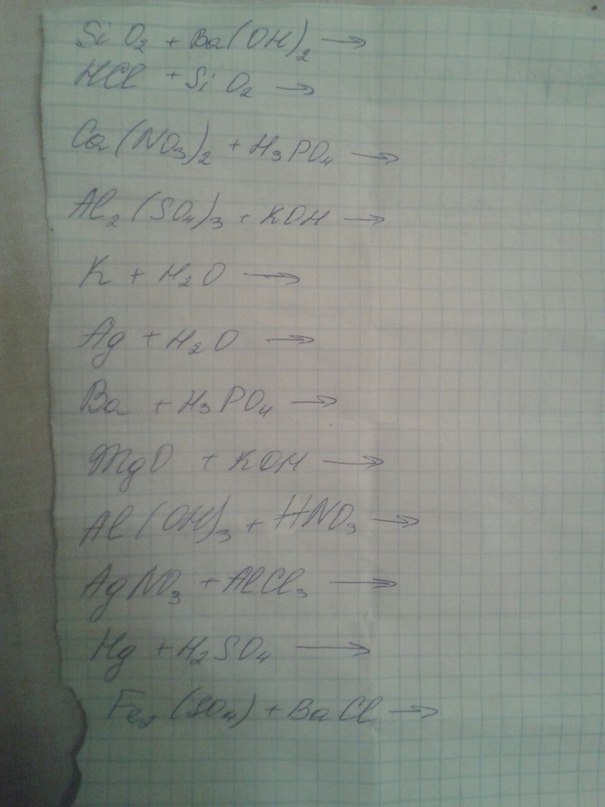 SiO₂ + Ba(OH)₂ →
HCl + SiO₂ →
Ca(NO₃)₂ + H₃PO₄ →
Al₂(SO₄)₃ + KOH →
K + H₂O →
Ag + H₂O →
Ba + H₃PO₄ →
MgO + KOH →
Al(OH)₃ + HNO₃ →
AgNO₃ + AlCl₃ →
Hg + H₂SO₄ →
Fe₂(SO₄) + BaCl →